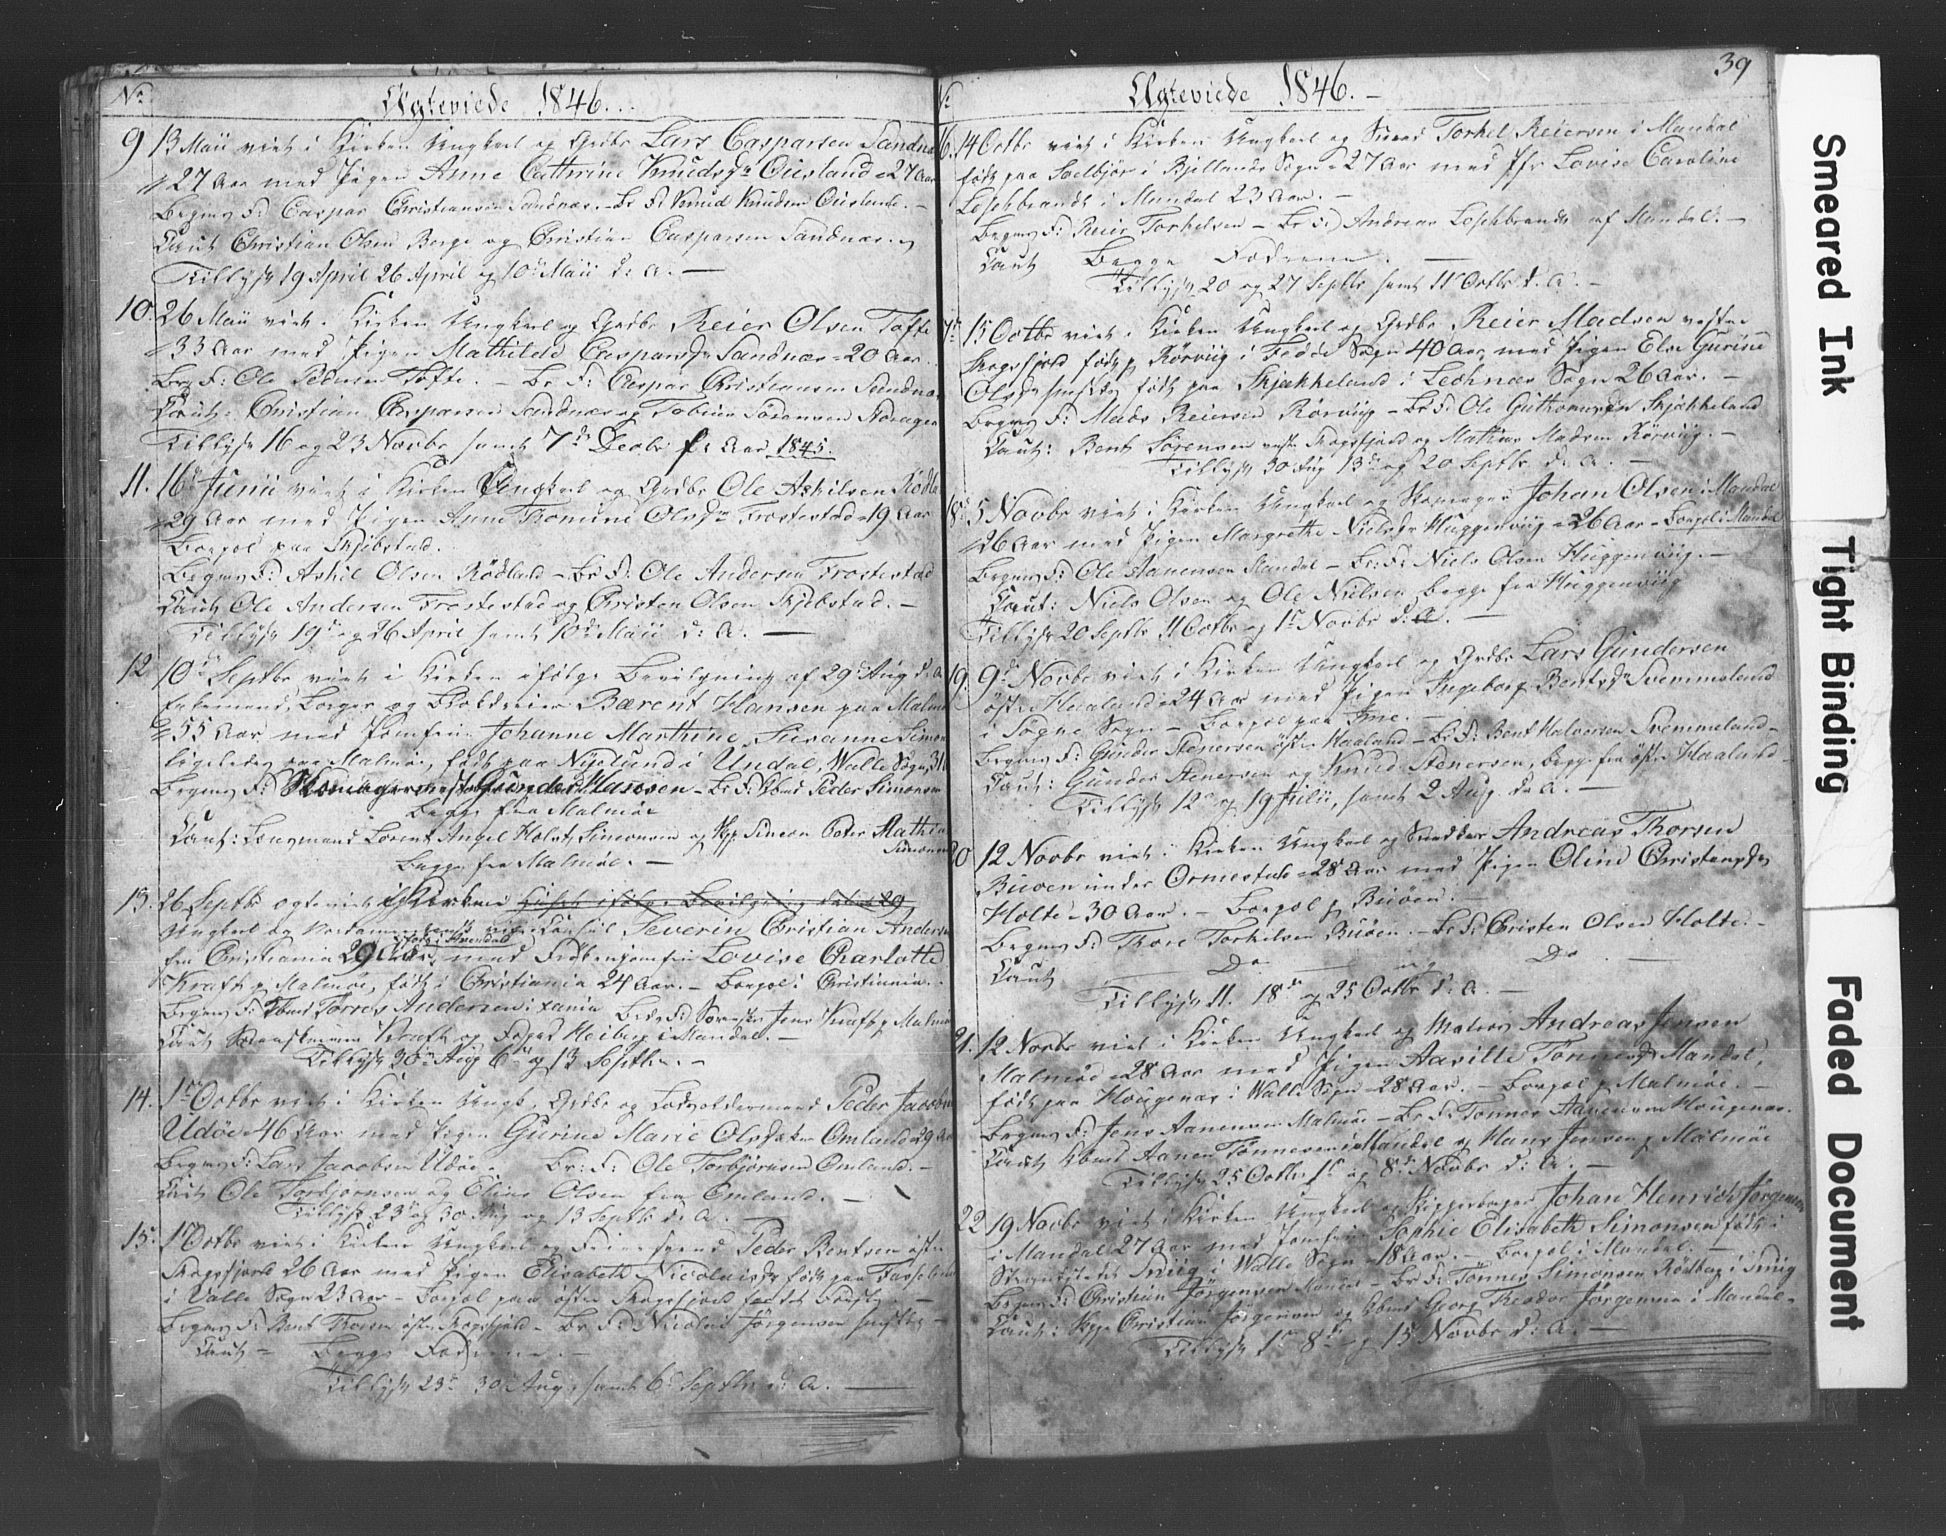 No
Ægteviede 1846.
9 13 Maii viet i Kirken Ungkarl og Grdbr Lars Casparsen Sandnæs
27 Aar med Pigen Anne Cathrine Knudsdr Ousland 27 Aar
Begms F: Caspar Christiansen Sandnæs. Br F: Knud Knudsen Ousland. -
Caut Christian Olsen Berge og Christian Casparsen Sandnæs.
Tillyst 19 April 26 April og 10d Maii d: A. —
10. 26 Maii viet i Kirken Ungkarl og Grdbr Reier Olsen Tofte
33 Aar med Pigen Mathilde Caspersdr Sandnæs 20 Aar.
Brg F: Ole Pedersen Tofte. - Br F: Caspar Christiansen Sandnæs
Caut: Christian Caspersen Sandnæs og Tobias Sørensen
Tillyst 16 og 23 Novbr samt 7d Decbr f: Aar 1845.
11. 16d Junii viet i Kirken Ungkarl og Grdbr Ole Askilsen Rödland
29 Aar med Pigen Anne Thomine Olsdr Frostestad 19 Aar
Bopæl paa Skjebstad.
Begms F: Askil Olsen Rödland - Br F: Ole Andersen Frostestad
Caut Ole Andersen Frostestad og Christen Olsen Skjebstad. -
Tillyst 19d og 26 April samt 10d Maii d: A. —
12 10d Septbr viet i Kirken ifølge Bevilgning af 29d Aug d: A
Enkemand, Borger og Bærent Hansen paa Malmø
55 Aar med Jomfrue Johanne Marthine Susanne Simonsen
ligeledes paa Malmø, født paa Njelund i Undal, Walle Sogn, 31
Begms F: Gunder Hansen - Br F: Peder Simonsen
Begge fra Malmøe
Caut: Lensmand Lorent Angel Holst Simonsen og Skp Simon Peter Mathias
Simonsen
Begge fra Malmøe. —
13. 26 Septbr ægteviet i Kirken Huset ifølge Bevilgning dateret 29
Ungkarl og Severin Christian Andersen
født i Arendal
fra Christiania 29 Aar, med Lovise Charlotte
Kraft p. Malmøe, født i Christiania 24 Aar. - Bopæl i Christiania.
Begms F: Torres Andersen i Xania Br F: Jens Kraft p Malmø
Caut Kraft og Heiberg i Mandal. -
Tillyst 30 Aug 6 og 13 Septbr. -
14. 1ste Octbr viet i Kirken Ungk. Grdbr og Lodsoldermand Peder Jacobsen
Udøe 46 Aar med Pigen Gurine Marie Olsdatter Omland 29 Aar
Begms F: Lars Jacobsen Udøe. Br: F: Ole Torbjørnsen Omland. -
Caut Ole Torbjørnsen og Elias Olsen fra Omland. —
Tillyst 23d og 30 Aug og 13 Septbr d: A. —
15. 1 Octbr viet i Kirken Ungkarl og Peder Bentsen østre
Skogsfjord 26 Aar med Pigen Elisabeth Nicolaisdr født paa
i Valle Sogn 23 Aar - Bopæl paa østre Skogsfjord
Begms F: Bent Thorsen østre Skogsfjord - Br F: Nicolai Jørgensen
Caut - Begge Fædrene. -
Tillyst 23d 30 Aug, samt 6 Septbr d: A. —
39
Ægteviede 1846. -
16. 14 Octbr viet i Kirken Ungkarl og Torkel Reiersen i Mandal
født paa i Bjellands Sogn 27 Aar med Jfr Lovise Caroline
Leschbrandt i Mandal 23 Aar. -
Begms F: Reier Torkelsen - Br F: Andreas Leschbrandt af Mandal. -
Caut Begge Fædrene. —
Tillyst 20 og 27 Septbr samt 11 Octbr d: A. -
17. 15 Octbr viet i Kirken Ungkarl og Grdbr Reier Madsen vestre
Skogsfjord født p Rörviig i Fedde Sogn 40 Aar med Pigen Else Gurine
Olsdr født paa Skjekkeland i Lechnæs Sogn 26 Aar. -
Begms F: Mads Reiersen Rörviig - Br F: Ole Guthormsen Skjekkeland
Caut: Bent Sörensen vestre Skogsfjord og Mathias Madsen Rörviig. -
Tillyst 30 Aug 13d og 20 Septbr d: A. —
18. 5 Novbr viet i Kirken Ungkarl og Skomager Johan Olsen i Mandal
26 Aar med Pigen Margrethe Nielsdr Huggenviig 26 Aar - Bopæl i Mandal
Begms F: Ole Aanensen Mandal - Br: F: Niels Olsen Huggenviig. -
Caut: Niels Olsen og Ole Nielsen begge fra Huggenviig
Tillyst 20 Septbr 11 Octbr og 1ste Novbr d: A. —
19. 9d Novbr viet i Kirken Ungkarl og Grdbr Lars Gundersen
østre Haaland 24 Aar med Pigen Ingeborg Bentsdr Svemmeland
i Sogne Sogn - Bopæl paa Ime. -
Begms F: Gunder Stenersen østre Haaland - Br F: Bent Halvorsen Svemmeland -
Caut: Gunder Stenersen og Knud Stenersen, begge fra østre Haaland -
Tillyst 12 og 19 Julii, samt 2 Aug. d: A. -
20 12 Novbr viet i Kirken Ungkarl og Snedker Andreas Thorsen
Buöen under Ormestad 28 Aar med Pigen Oline Christensdr
Holte 30 Aar. - Bopæl p Buöen. -
Begms F: Thore Torkelsen Buöen. - Br F: Christen Olsen Holte. -
Caut Do og Do —
Tillyst 11. 18d og 25 Octbr d: A. -
21. 12 Novbr viet i Kirken Ungkarl og Matros Andreas Jensen
Malmøe 28 Aar med Pigen Aasille Tönnesdr Mandal,
født paa Hougenæs i Walle Sogn 28 Aar. - Bopæl p Malmøe. -
Begms F: Jens Aanensen Malmøe - Br F: Tönnes Aanensen Hougenæs.
Caut Aanen Tönnesen i Mandal og Hans Jensen p Malmøe
Tillyst 25 Octbr 1ste og 8d Novbr d: A. —
22 19 Novbr viet i Kirken Ungkarl og Johan Henrich Jørgensen
i Mandal 27 Aar med Jomfrue Sophie Elisabeth Simonsen født i
Snig i Walle Sogn 18 Aar. - Bopæl i Mandal. —
Begms F: Christian Jørgensen Mandal - Br F: Tönnes Simonsen Rödberg i Snig
Caut: Skp Christian Jörgensen og Georg Theodor Jørgensen i Mandal -
Tillyst 1ste 8de og 15 Novbr d: A. —
Smeared Ink
Tight Binding
Faded Document